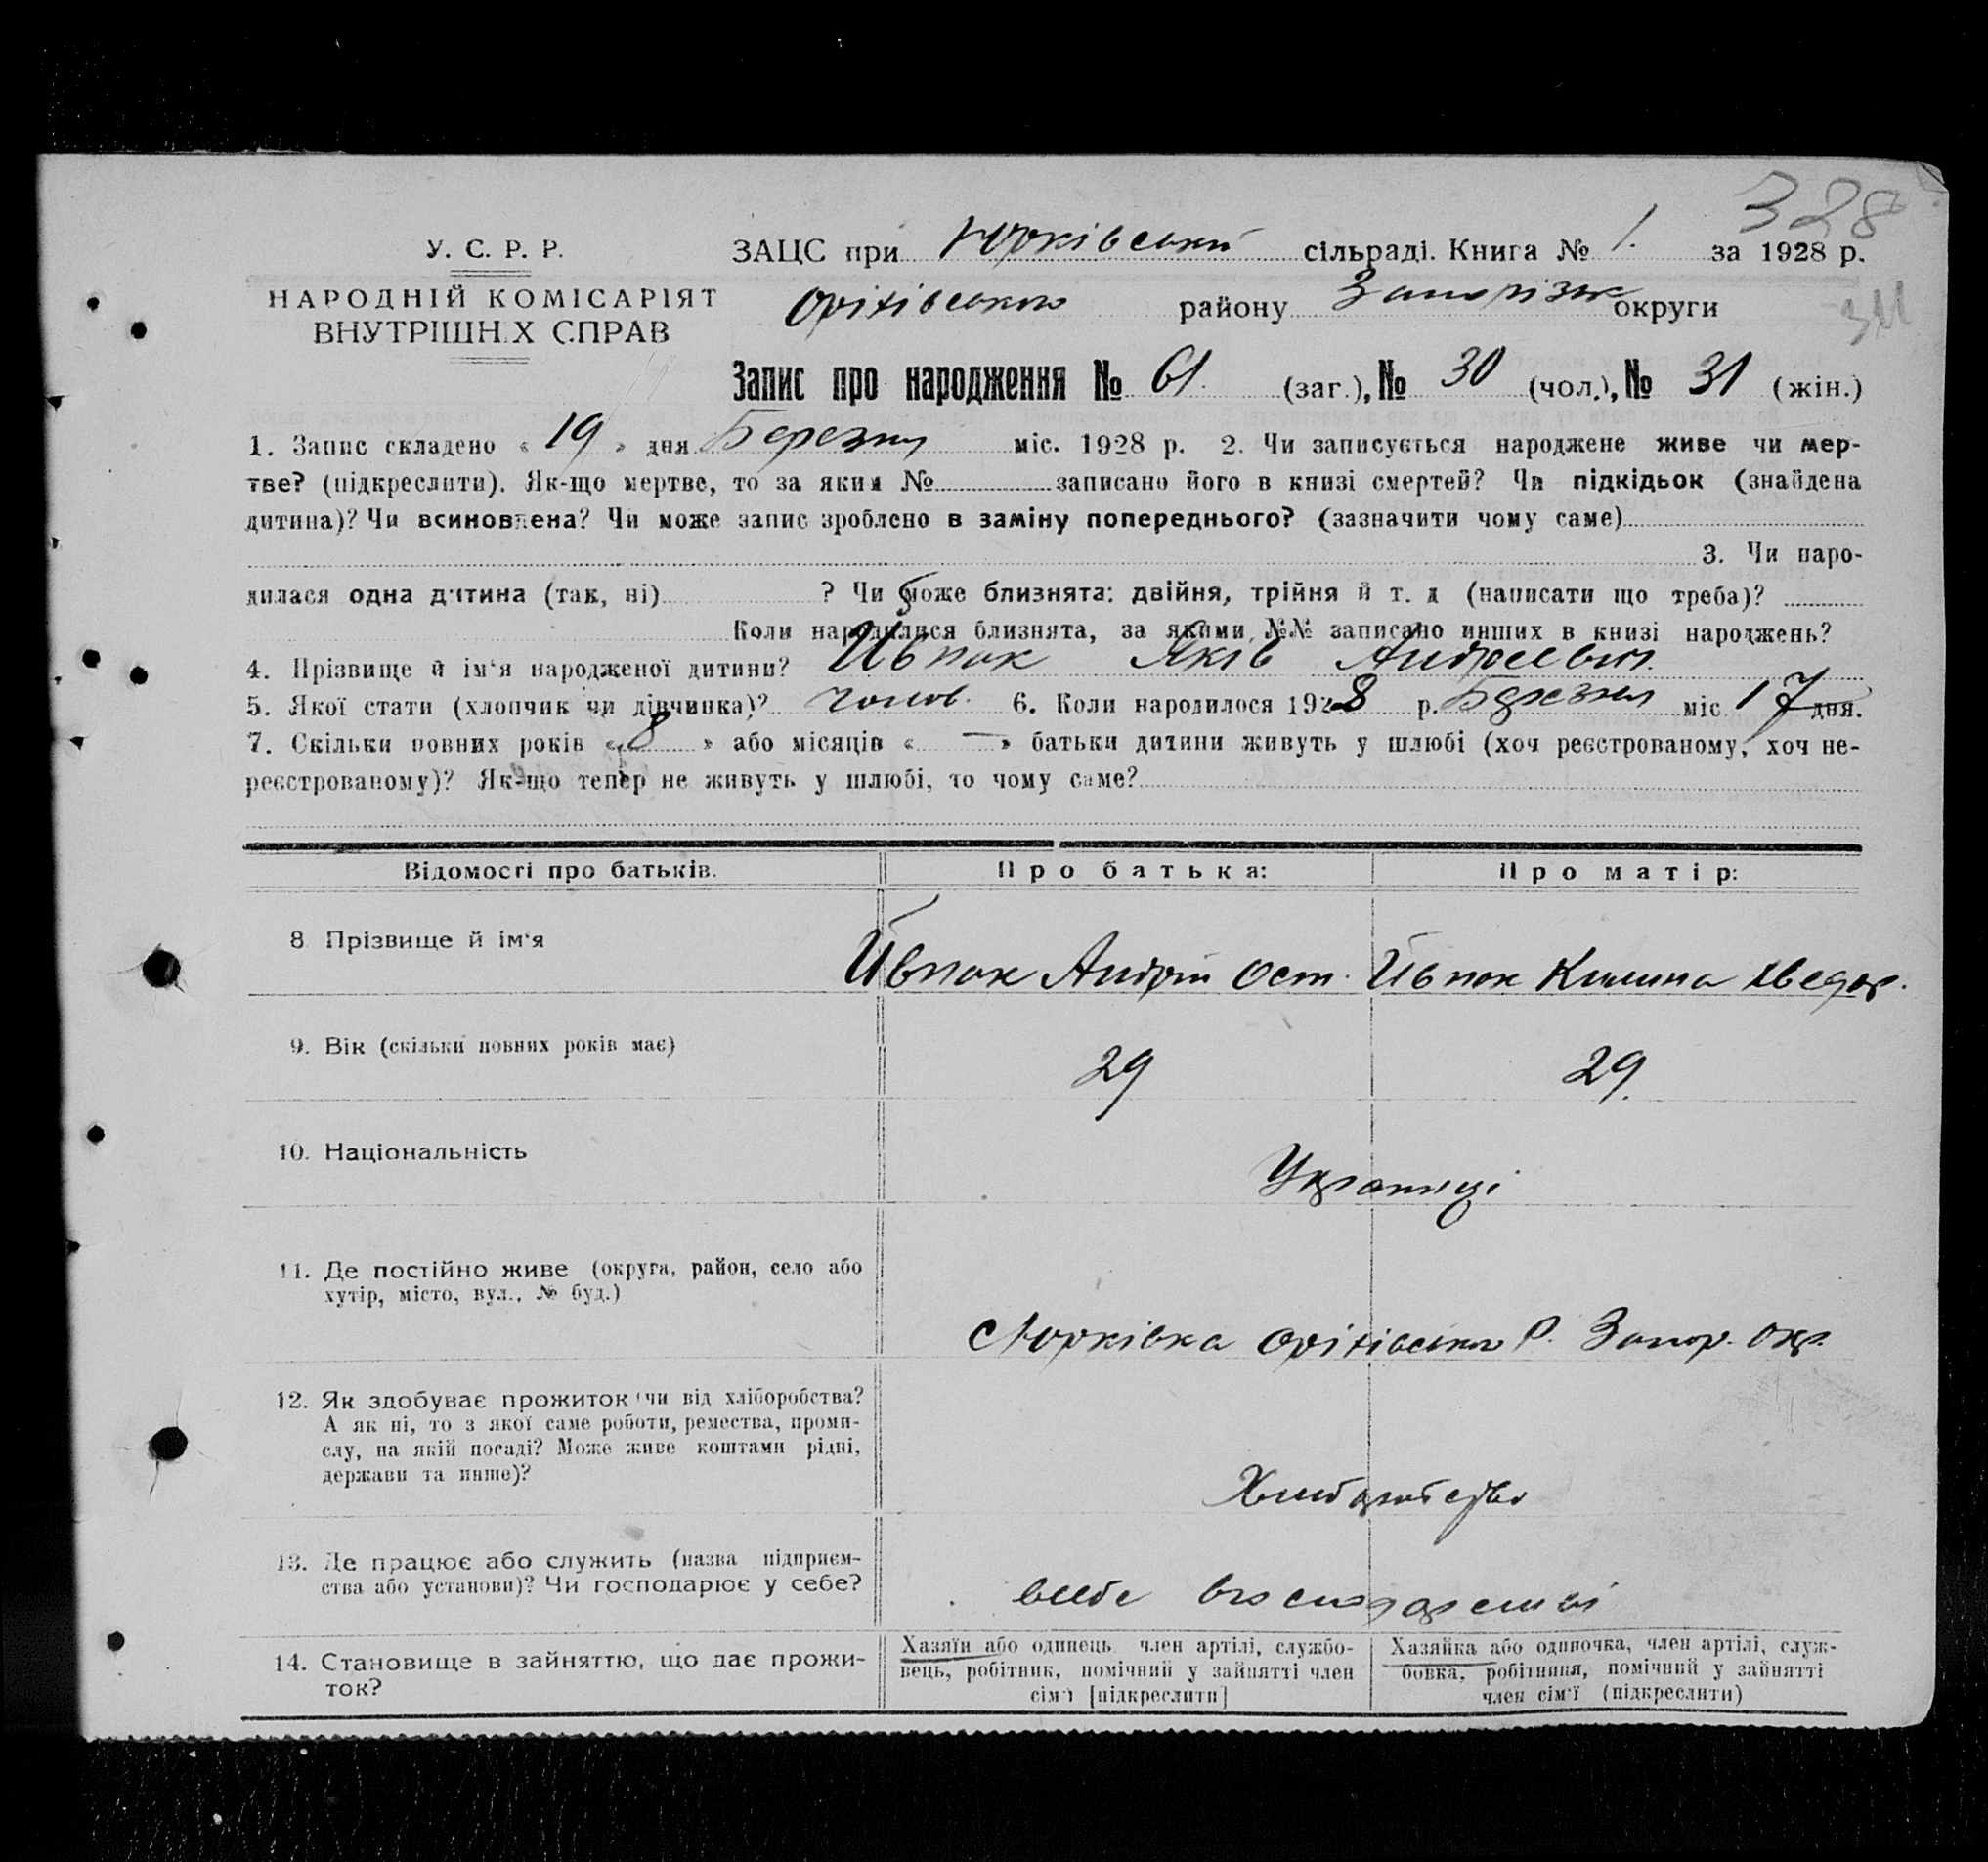 328
У. С. Р. Р.
ЗАЦС при Юрківській сільраді. Книга № 1. за 1928 р.
НАРОДНІЙ КОМІСАРІЯТ
ВНУТРІШН.Х СПРАВ
Оріхівського району Запорізьк округи
Запис про народження № 61. (заг.), № 30 (чол.), № 31 (жін.)
1. Запис складено « 19 » дня Березня міс. 1928 р. 2. Чи записується народжене живе чи мер-
тве? (підкреслити). Як-що мертве, то за яким № записано його в книзі смертей? Чи підкідьок (знайдена
дитина)? Чи всиновлена? Чи може запис зроблено в заміну попереднього? (зазначити чому саме)
3. Чи наро-
дилася одна дитина (так, ні) ? Чи може близнята: двійня, трійня й т. д (написати що треба)?
Коли народилися близнята, за якими №№ записано инших в книзі народжень?
4. Прізвище й ім'я народженої дитини? Йвпак Яків Андреевич.
5. Якої стати (хлопчик чи дівчинка)? чолов. 6. Коли народилося 1928 р. Березня міс 17 дня.
7. Скільки повних років « 8 » або місяців « — » батьки дитини живуть у шлюбі (хоч реєстрованому, хоч не-
реєстрованому)? Як-що тепер не живуть у шлюбі, то чому саме?
Відомості про батьків. Про батька: Про матір:
8 Прізвище й ім'я Йвпак Андрій Ост. Йвпак Килина Хведор.
9. Вік (скільки повних років має) 29 29.
10. Національність Українці
11. Де постійно живе (округа, район, село або
хутір, місто, вул., № буд.)
с Юрківка Оріхівського Р. Запор. Окр.
12. Як здобуває прожиток (чи від хліборобства?
А як ні, то з якої саме роботи, ремества, проми-
слу, на якій посаді? Може живе коштами рідні,
держави та инше)?
Хліборобство
13. Де працює або служить (назва підприєм-
ства або установи)? Чи господарює у себе?
всебе
14. Становище в зайняттю, що дає прожи-
ток?
Хазяїн або одинець, член артілі, службо-
вець, робітник, помічний у зайнятті член
сім'ї [підкреслити]
Хазяйка або одиночка, член артілі, служ-
бовка, робітниця, помічний у зайнятті
член сім'ї (підкреслити)